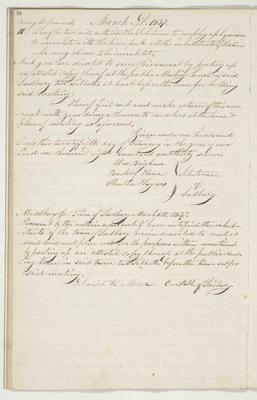 March A.D. 1837.
11. To see if the town will authorize the Selectmen to employ a physician
to inoculate with the kine pock all the inhabitants of the town
who may choose to be inoculated.
And you are directed to serve this warrant by posting up
an attested copy thereof at the public Meeting house in said
Sudbury two Sabbaths at least before the time for holding
said meeting.
Hereof fail not and make return of this warrant
with your doings thereon to ourselves at the time &
place of meeting as aforesaid.
Given under our hands and
Seals this twenty fifth day of February in the year of our
Lord one thousand eight hundred and thirty seven.
Wm. Brigham
Selectmen
of
Sudbury
Middlesex Ss. Town of Sudbury March 6th 1837.
Pursuant to the within warrant I have notified the inhabitants
of the town of Sudbury herein described to meet at
said time and place and for the purposes within mentioned
by posting up an attested copy thereof at the public meeting
house in said town two Sabbaths before the time set for
said meeting.
Constable of Sudbury